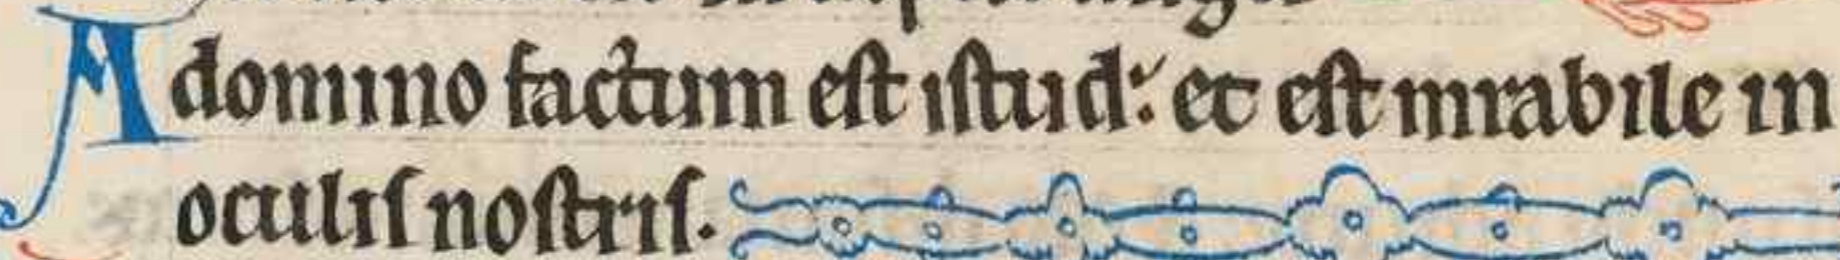 A domino factum est istud: et est mirabile in
oculis nostris.